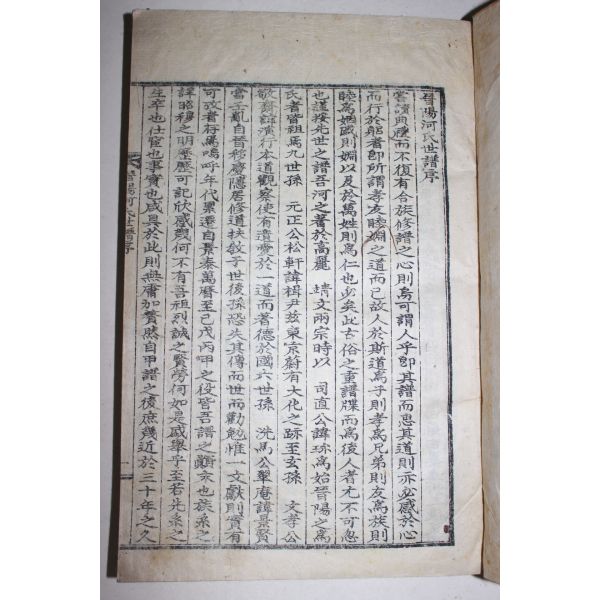 晉陽河氏世譜序
嘗讀典禮而不復有合族修譜之心則焉可謂人乎卽其譜而思其道則亦必感於心
而行於躬者卽所謂孝友睦婣之道而已故人於斯道爲子則孝爲兄弟則友爲族則
睦爲姻戚則婣以及於萬姓則爲仁也必矣此古俗之重譜牒而爲後人者尤不可忽
也謹按先世之譜吾河之著於高麗 靖文兩宗時以 司直公諱珍爲始晉陽之爲
氏者皆祖焉九世孫 元正公松軒諱楫尹玆東京蔚有大化之跡至玄孫 文孝公
敬齋諱演行本道觀察使有遺愛於一道而著德於國六世孫 洗馬公翠庵諱景賢
當壬亂自晉移慶隱居修道扶敎子世後孫恐失其傳而世而勸勉惟一文獻則實有
可攷者存焉嗚呼年代累遷自景泰萬曆至己戊丙甲之役皆吾譜之顯末也族系之
詳昭穆之明歷歷可記欣感興何不有吾祖烈誠之賢勞何如是盛擧乎至若先系之
生卒也仕宦也事實也咸具於此則無庸加贅然自甲譜之後庶幾近於三十年之久
晉陽河氏世譜序
一